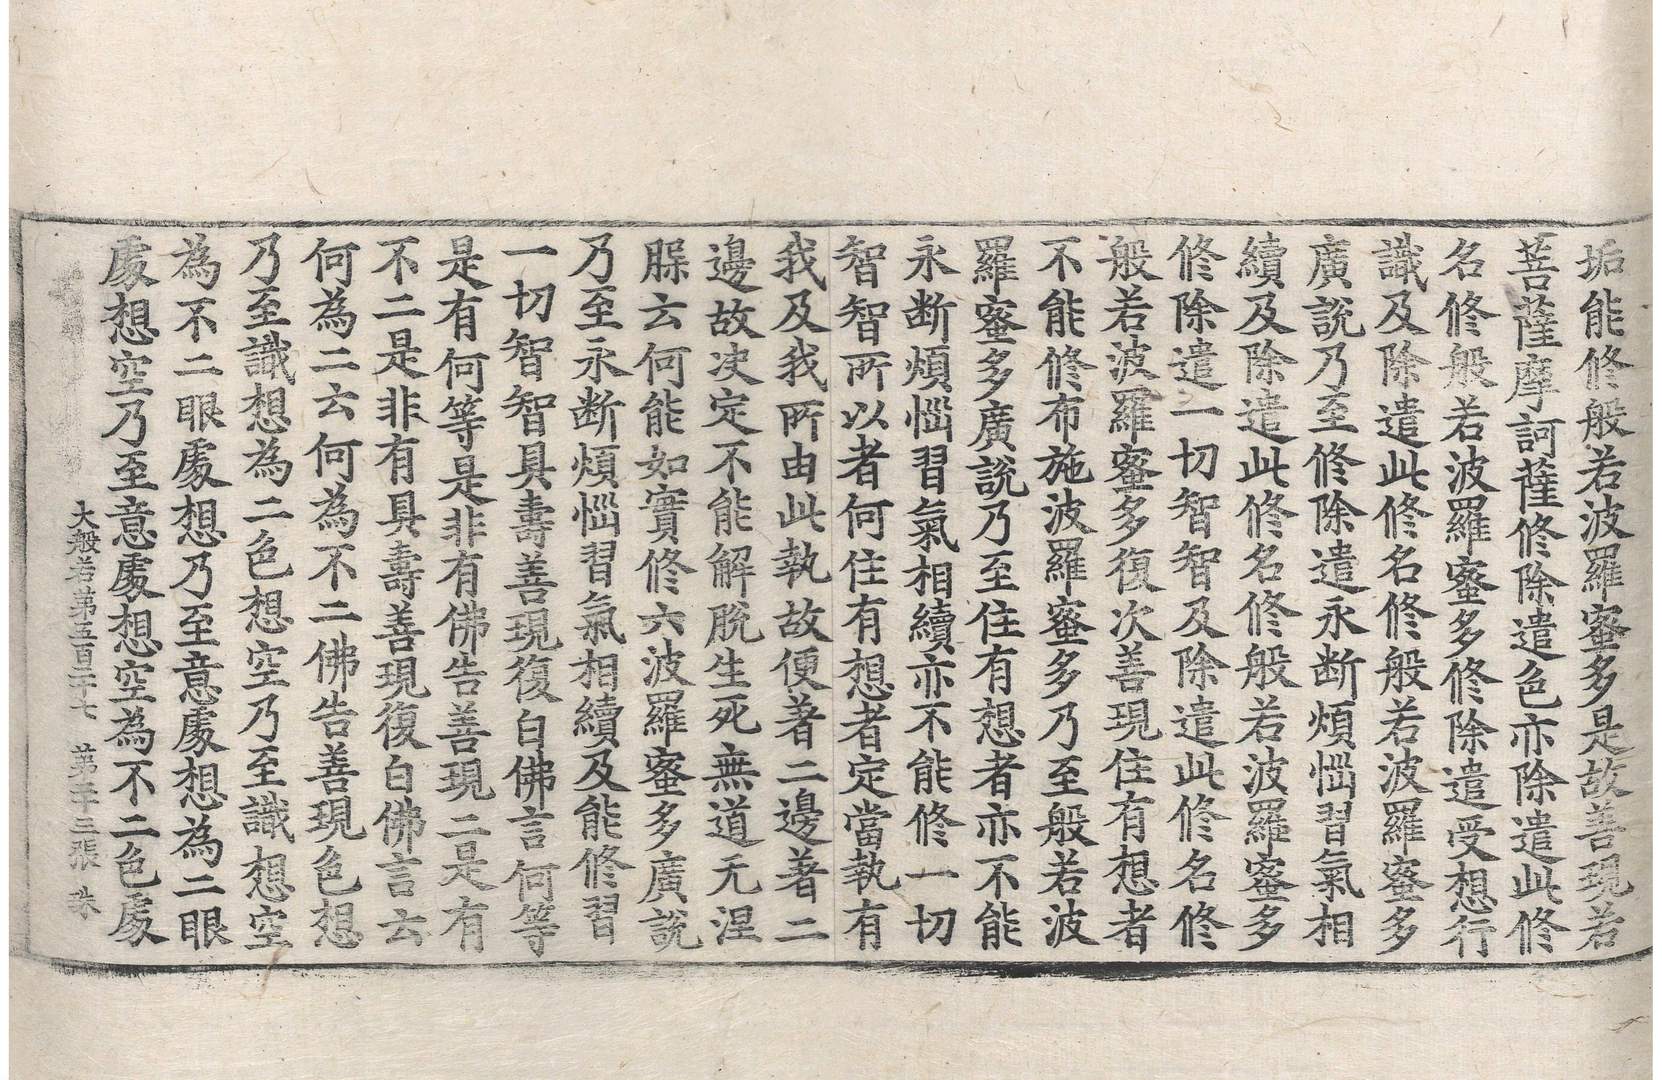 垢能修般若波羅蜜多是故善現若
菩薩摩訶薩修除遣色亦除遣此修
名修般若波羅蜜多修除遣受想行
識及除遣此修名修般若波羅蜜多
廣說乃至修除遣永断煩惱習氣相
續及除遣此修名修般若波羅蜜多
修除遣一切智智及除遣此修名修
般若波羅蜜多復次善現住有想者
不能修布施波羅蜜多乃至般若波
羅蜜多廣說乃至住有想者亦不能
永断煩惱習氣相續亦不能修一切
智智所以者何住有想者定當執有
我及我所由此執故便著二邊著二
邊故决定不能解脫生死無道无涅
槃云何能如實修六波羅蜜多廣說
乃至永断煩惱習氣相續及能修習
一切智智具壽善現復白佛言何等
是有何等是非有佛告善現二是有
不二是非有具壽善現復白佛言云
何為二云何為不二佛告善現色想
乃至識想為二色想空乃至識想空
為不二眼處想乃至意處想為二眼
處想空乃至意處想空為不二色處
大般若第五百二十七 第二十三張 珠